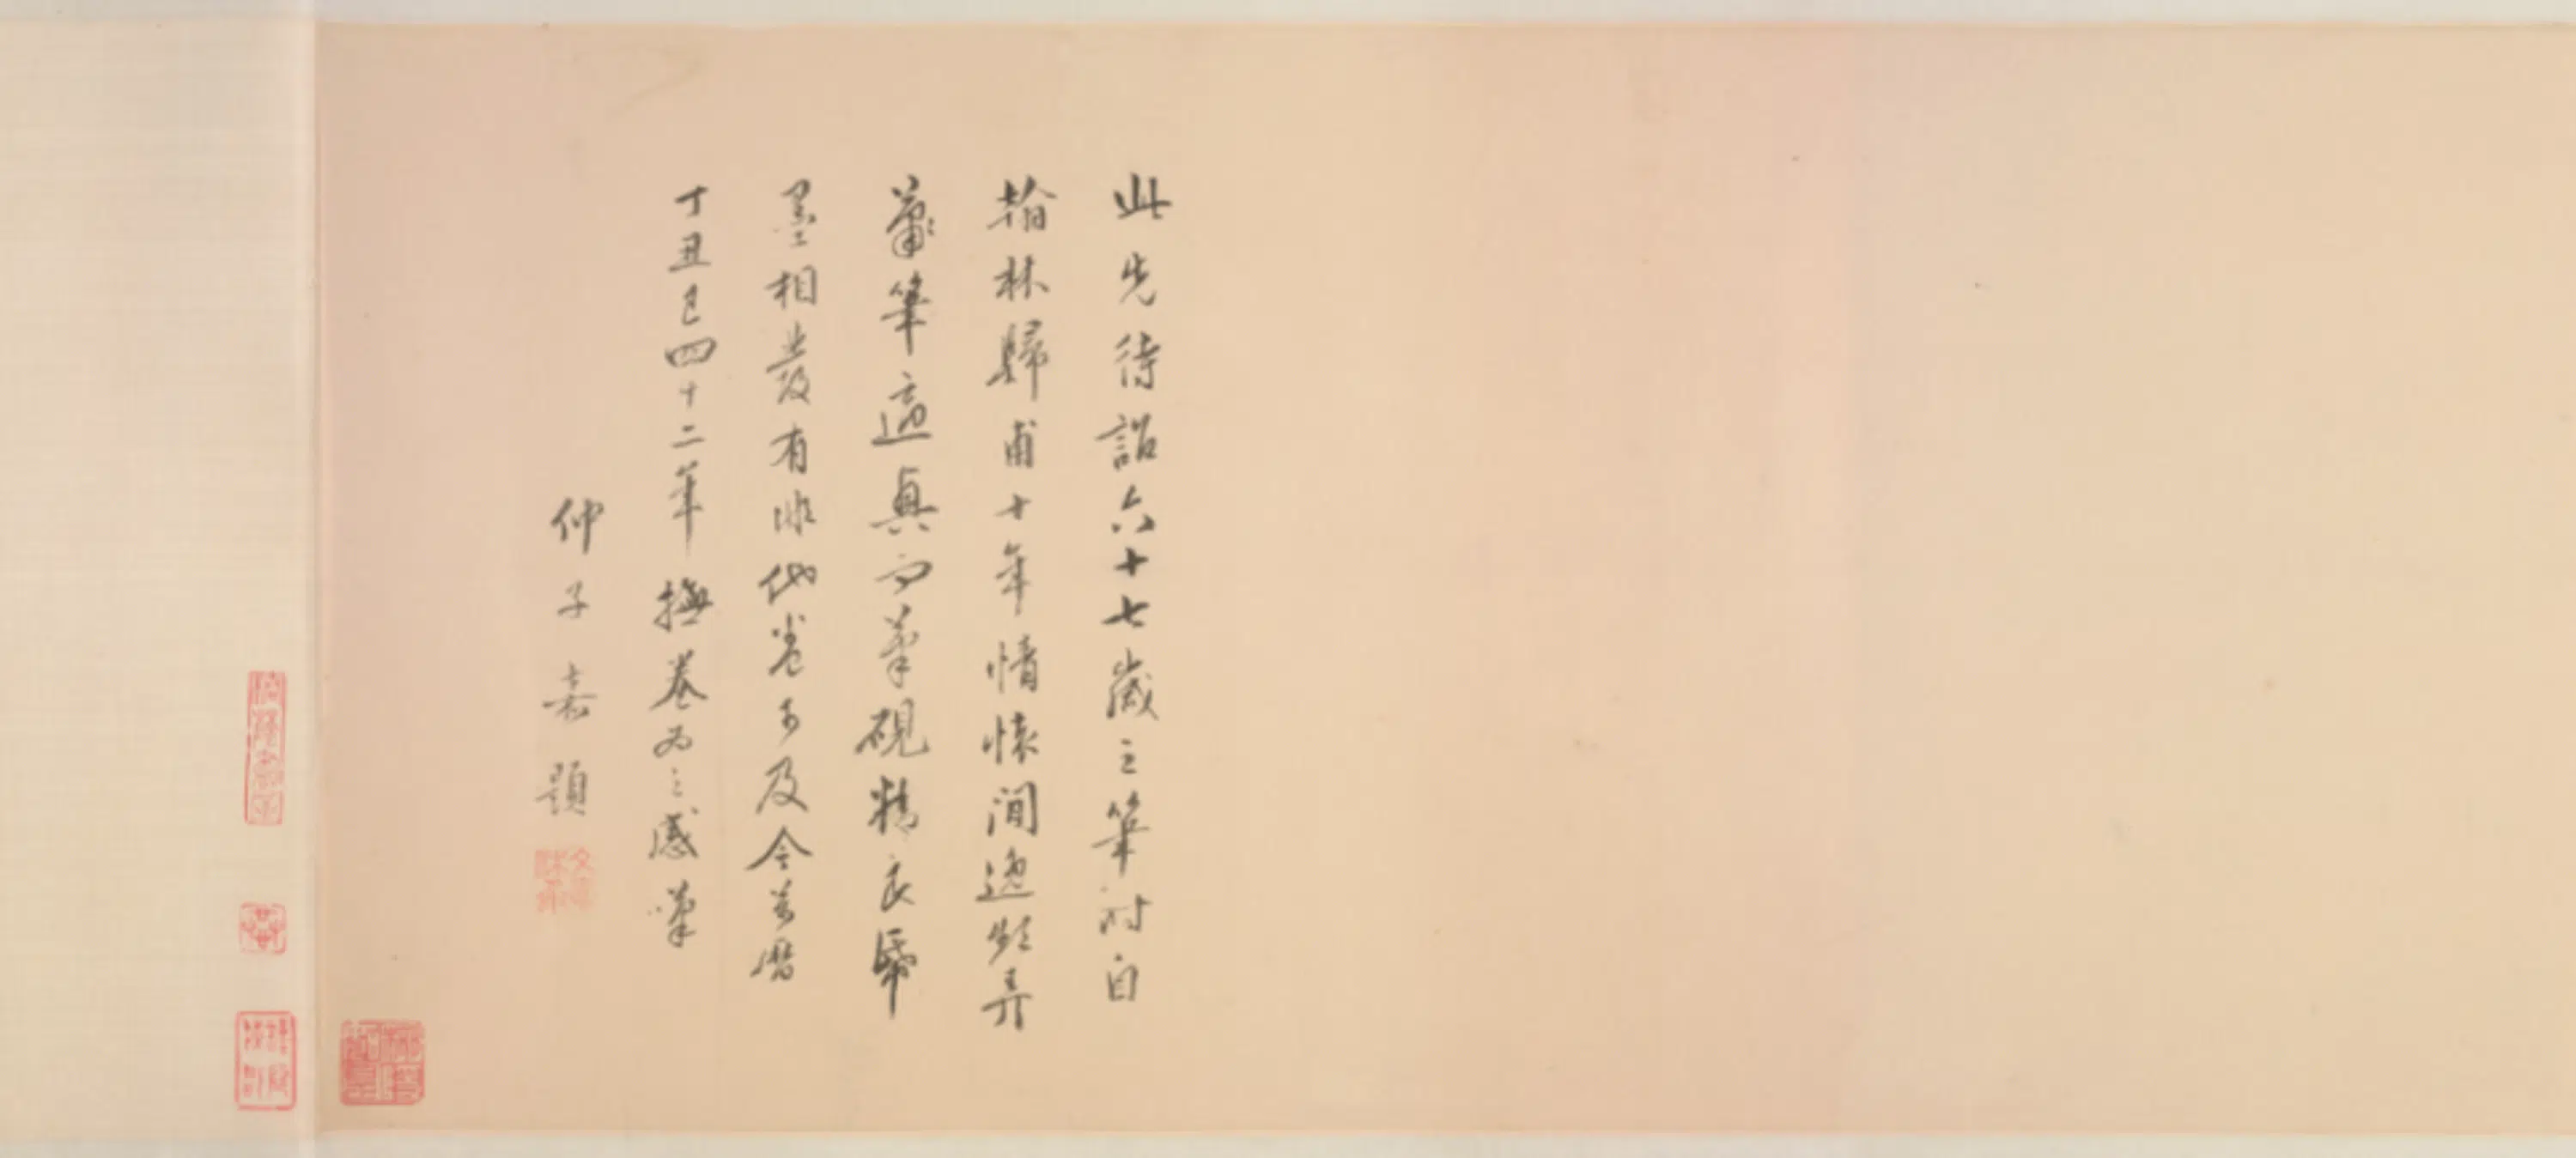 此先待詔六十七歲之筆時自
翰林歸甫十年情懷閒逸頻弄
豪筆適真而筆硯精良紙
墨相發有非他卷可及今萬曆
丁丑已四十二年撫卷為之感嘆
仲子嘉題